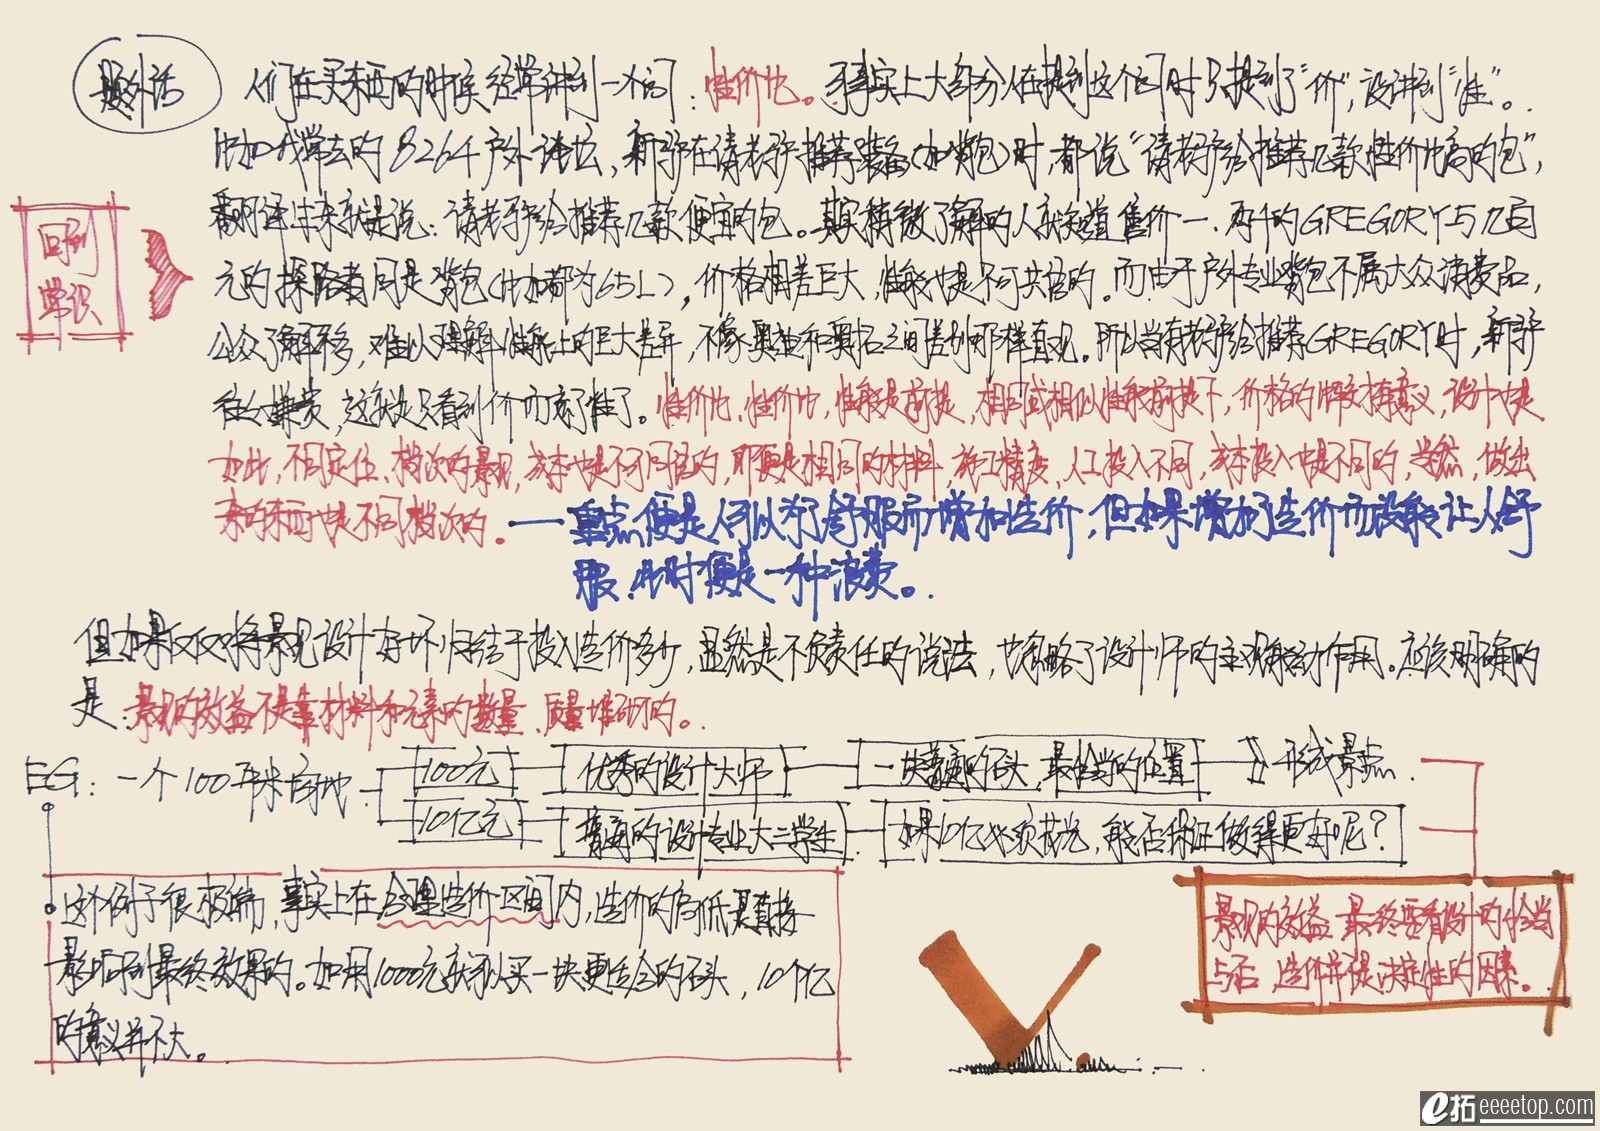 题外话
人们在买东西的时候经常讲到一个词：性价比。事实上大部分人在提到这个词时只提到了“价”，没讲到“性”。
比如我常去的8264户外论坛，新驴在请老驴推荐装备(如背包)时，都说“请老驴给推荐几款性价比高的包”，
翻译过来就是说：请老驴给推荐几款便宜的包。其实稍微了解的人就知道售价一、两千的GREGORY与几百
元的探路者同是背包(比如都为65L)，价格相差巨大，性能也是不可共语的。而由于户外专业背包不属大众消费品，
公众了解不多，难以理解性能上的巨大差异，不像奥迪和奥拓之间差别那样直观。所以当有老驴给推荐GREGORY时，新驴
往往嫌贵，这就是只看到价而忘了性了。性价比、性价比，性能是前提，相同或相似性能前提下，价格的比较才有意义，设计也是
如此，不同定位、档次的景观，成本也是不可同语的，即便是相同的材料，施工精度、人工投入不同，成本投入也是不同的，当然，做出
来的东西也是不同档次的。
——重点便是人可以为了舒服而增加造价，但如果增加了造价而没能让人舒
服，此时便是一种浪费。
回到
常识
但如果仅仅将景观设计好坏归结于投入造价多少，显然是不负责任的说法，也忽略了设计师的主观能动作用。应该明确的
是：景观的效益不是靠材料和元素的数量、质量堆砌的。
EG：一个100平米场地
100元
优秀的设计大师
一块普通的石头，最恰当的位置
形成景点
10亿元
普通的设计专业大二学生
如果10亿必须花光，能否保证做得更好呢？
这个例子很极端，事实上在合理造价区间内，造价的高低是直接
影响到最终效果的。如用1000元就可以买一块更适合的石头，10个亿
的意义并不大。
景观的效益最终要看设计的恰当
与否，造价并非决定性的因素。
e拓 eeeetop.com